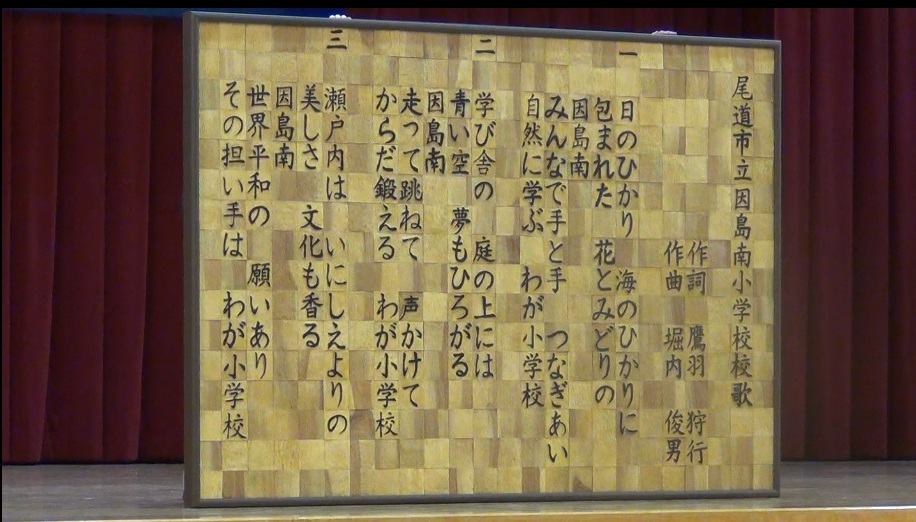 尾道市立因島南小学校校歌
作詞 鷹羽 狩行
作曲 堀内 俊男
一
日のひかり 海のひかりに
包まれた 花とみどりの
因島南
みんなで手と手 つなぎあい
自然に学ぶ わが小学校
二
学び舎の 庭の上には
青い空 夢もひろがる
因島南
走って跳ねて 声かけて
からだ鍛える わが小学校
三
瀬戸内は いにしえよりの
美しさ 文化も香る
因島南
世界平和の 願いあり
その担い手は わが小学校